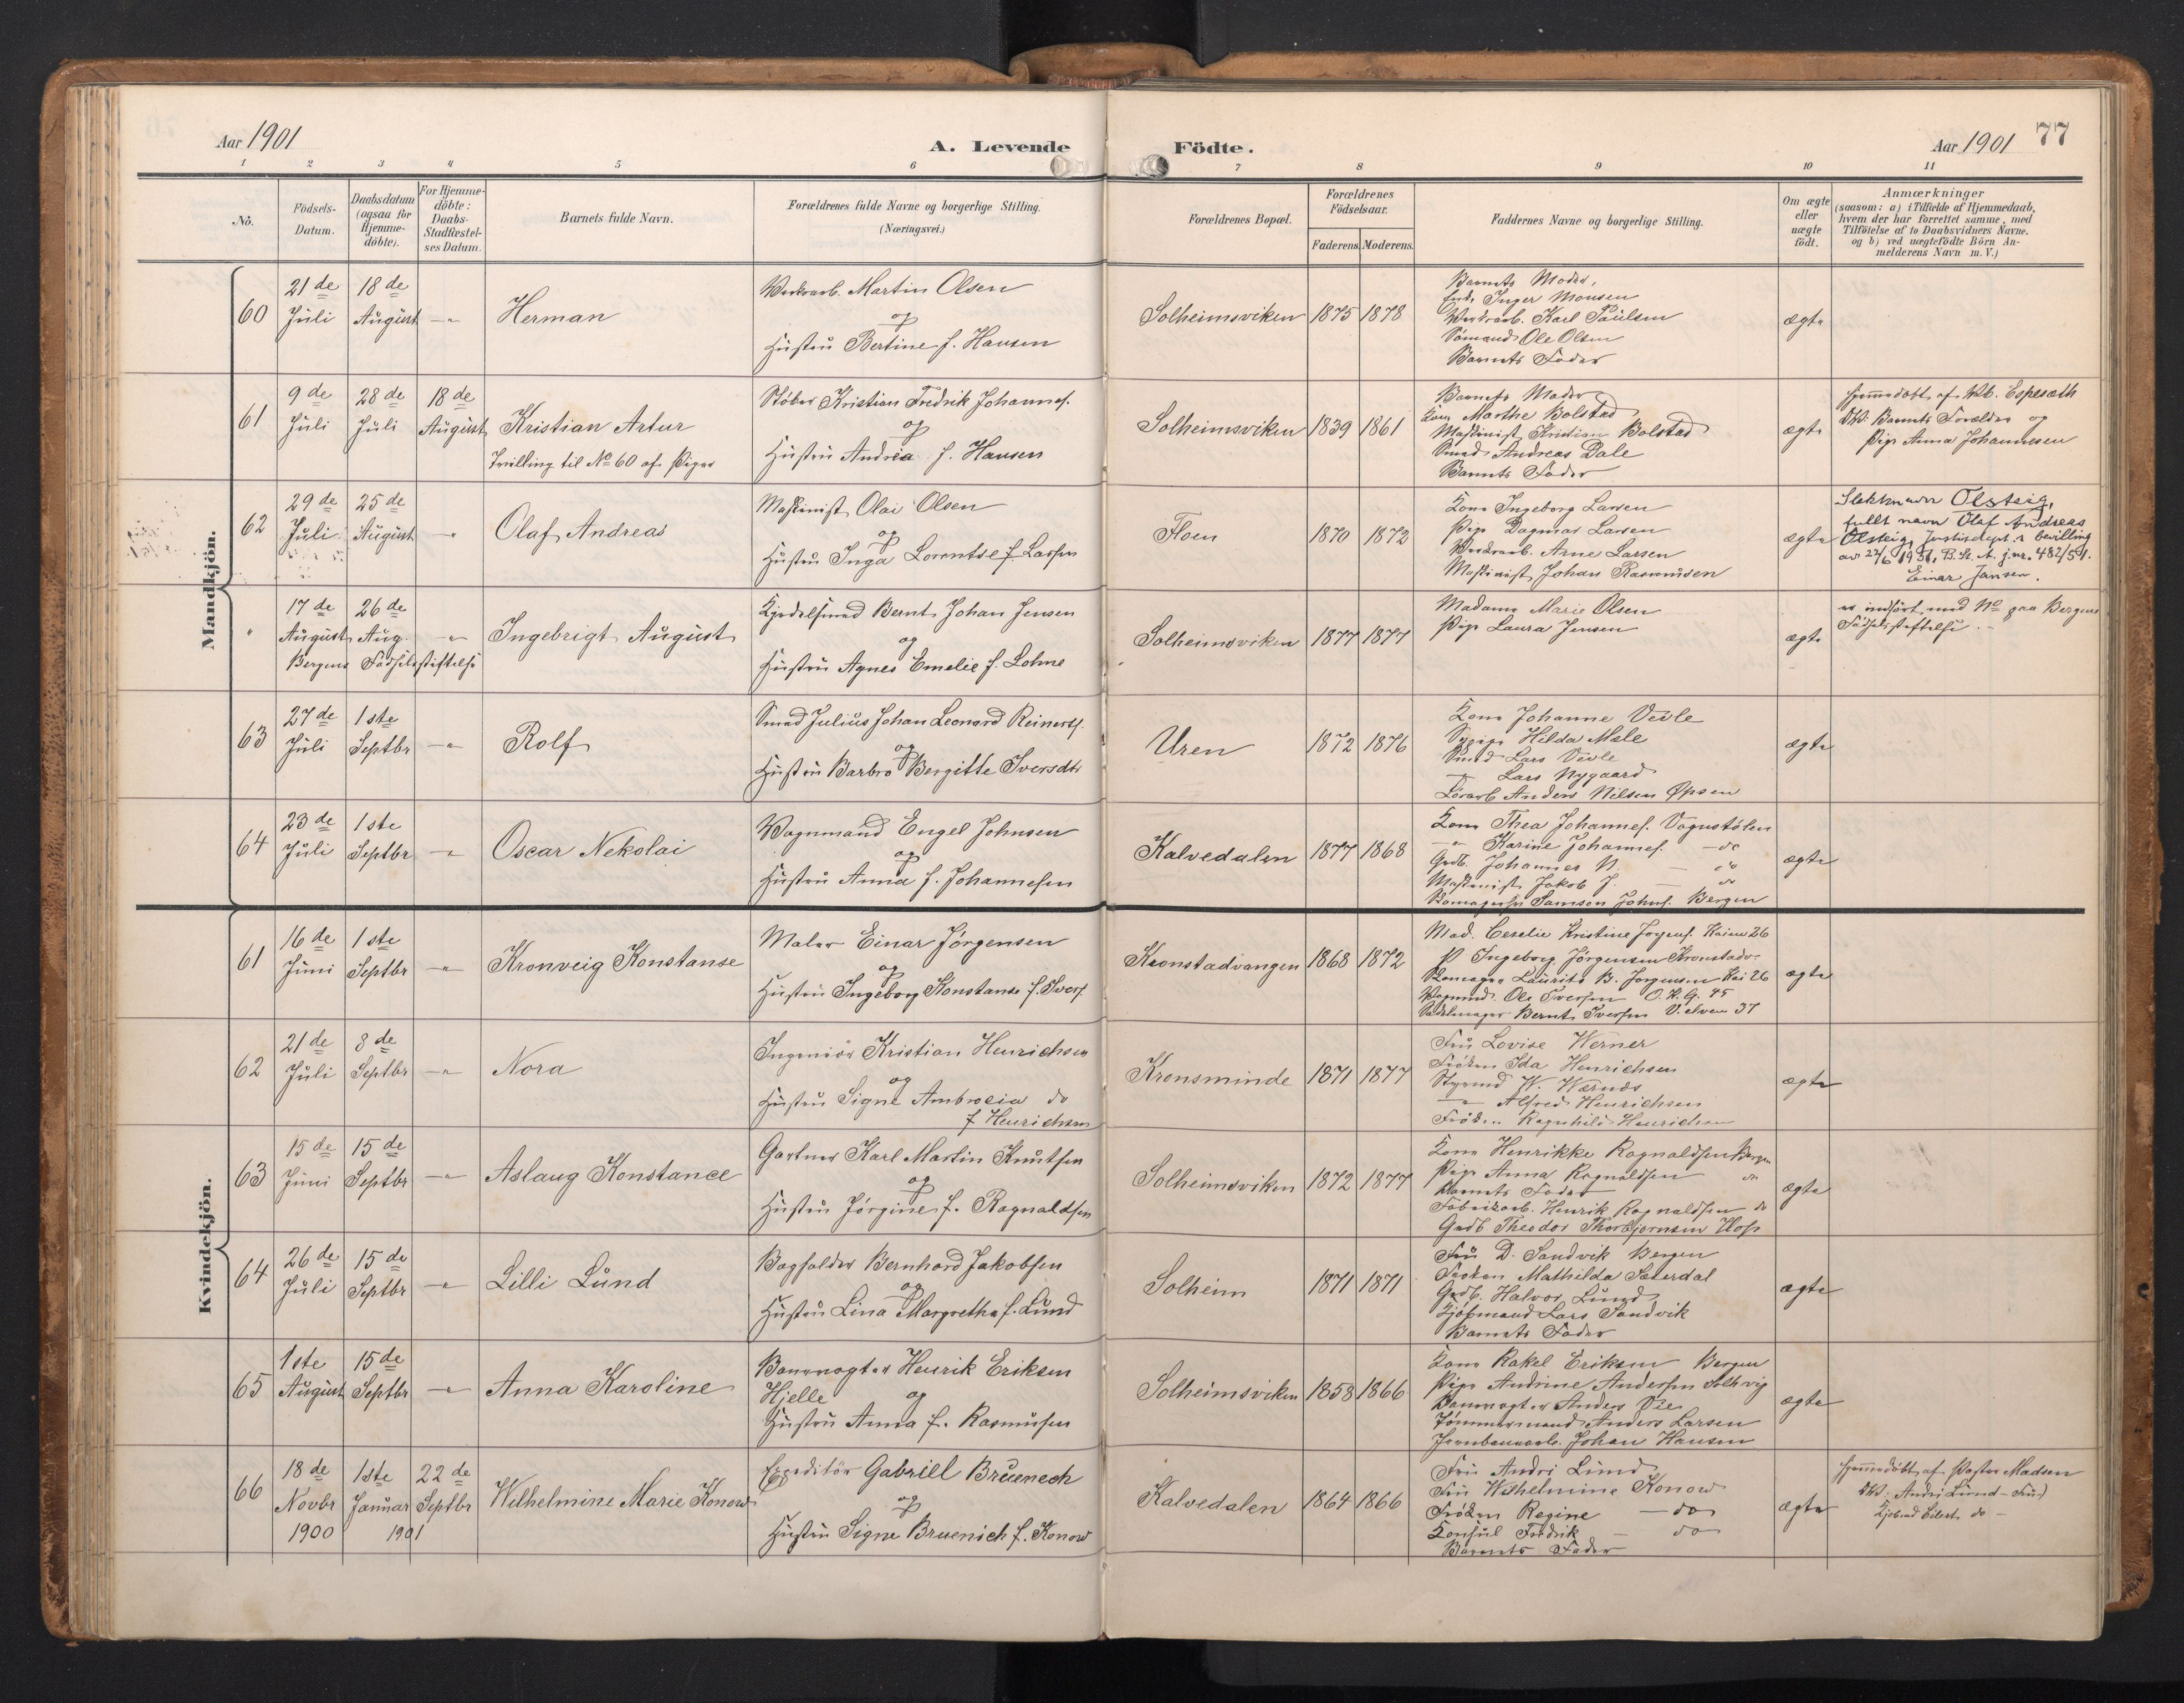 Aar 1901
A. Levende
Födte.
Aar 1901
77
1 2 3 4 5 6 7 8 9 10 11
No.
Födsels-
Datum.
Daabsdatum
(ogsaa for
Hjemme-
döbte).
For Hjemme-
döbte:
Daabs-
Stadfæstel-
ses Datum.
Barnets fulde Navn.
Forældrenes fulde Navne og borgerlige Stilling.
(Næringsvei.)
Forældrenes Bopæl.
Forældrenes
Födselsaar.
Faderens. Moderens.
Faddernes Navne og borgerlige Stilling.
Om ægte
eller
uægte
födt.
Anmærkninger
(saasom: a) i Tilfælde af Hjemmedaab,
hvem der har forrettet samme, med
Tilföielse af to Daabsvidners Navne.
og b) ved uægtefödte Börn An-
melderens Navn m. V.)
Mandkjön.
60
21 de
Juli
18 de
August
Herman
Martin Olsen
og
Hustru Bertine f. Hansen
Solheimsviken
1875 1878
Barnets Moder,
Inger Monsen
Karl Paulsen
Sømand Ole Olsen
Barnets Fader
ægte
61
9 de
Juli
28 de
Juli
18 de
August
Kristian Artur
Tvilling til No 60 af Piger
Støber Kristian Fredrik Johannes.
og
Hustru Andrea f. Hansen
Solheimsviken
1839 1861
Barnets Moder
Marthe Bolstad
Maskinist Kristian Bolstad
Smed Andreas Dale
Barnets Fader
ægte
Hjemmedøbt af Espesæth
Barnets Forældre og
Pige Anna Johannesen
62
29 de
Juli
25 de
August
Olaf Andreas
Maskinist Olai Olsen
og
Hustru Inga Lorentse f. Larsen
Floen
1870 1872
Kone Ingeborg Larsen
Pige Dagmar Larsen
Arne Larsen
Maskinist Johan Rasmussen
ægte
Slektsnavn Olsteig,
fullt navn Olaf Andreas
Olsteig, Justisdept.s bevilling
av 22/6 1951, B. St. A. j.nr. 482/51.
Einar Jansen.
17 de
August
26 de
Aug.
Bergens Fødselsstiftelse
Ingebrigt August
Kjedelsmed Bernt Johan Jensen
og
Hustru Agnes Emelie f. Lohne
Solheimsviken
1877 1877
Madame Marie Olsen
Pige Laura Jensen
ægte
er indført med No paa Bergens
Fødselsstiftelse.
63
27 de
Juli
1 ste
Septbr
Rolf
Smed Julius Johan Leonard Reinerts.
og
Hustru Barbro Bergitte Iversdtr
Uren
1872 1876
Kone Johanne Vevle
Hilda Mæle
Smed Lars Vevle
Lars Nygaard
Anders Nilsen Øpsen
ægte
64
23 de
Juli
1 ste
Septbr
Oscar Nekolai
Vognmand Engel Johnsen
og
Hustru Anna f. Johannesen
Kalvedalen
1877 1868
Kone Thea Johannes. Vognstølen
Karine Johannes. do
Grdb. Johannes N. do
Maskinist Jakob J. do
Samson Johns. Bergen
ægte
Kvindekjön.
61
16 de
Juni
1 ste
Septbr
Kronveig Konstanse
Maler Einar Jörgensen
og
Hustru Ingeborg Konstanse f. Ivers.
Kronstadvangen
1868 1872
Mad. Ceselie Kristine Jorgens. Kaien 26
P Ingeborg Jörgensen Kronstadv.
Laurits B. Jorgensen Kai 26
Vognmd. Ole Iversen O. K. G. 45
Sadelmager Bernt Iversen V. elven 37
ægte
62
21 de
Juli
8 de
Septbr
Nora
Ingeniör Kristian Henrichsen
og
Hustru Signe Ambrosia do
f Henrichsen
Kronsminde
1871 1877
Fru Lovise Werner
Frøken Ida Henrichsen
Styrmd W. Wærnes
Alfred Henrichsen
Frøken Ragnhild Henrichsen
ægte
63
15 de
Juni
15 de
Septbr
Aslaug Konstance
Gartner Karl Martin Knutsen
og
Hustru Jörgine f. Ragnaldsen
Solheimsviken
1872 1877
Kone Henrikke Ragnaldsen Bergen
Pige Anna Ragnaldsen do
Barnets Fader
Fabrikarb. Henrik Ragnaldsen do
Grdb Theodor Thorbjornsen Hop
ægte
64
26 de
Juli
15 de
Septbr
Lilli Lund
Bogholder Bernhard Jakobsen
og
Hustru Lina Margrethe f. Lund
Solheim
1871 1871
Fru D. Sandvik Bergen
Frøken Mathilda Sæterdal
Grdb. Halvor Lund
Kjøbmand Lars Sandvik
Barnets Fader
ægte
65
1 ste
August
15 de
Septbr
Anna Karoline
Banevogter Henrik Eriksen
Hjelle og
Hustru Anna f. Rasmusen
Solheimsviken
1858 1866
Kone Rakel Eriksen Bergen
Pige Andrine Andersen Solhvig
Banevogter Anders Vie
Tömmermand Anders Larsen
Jernbanearb. Johan Hansen
ægte
66
18 de
Novbr
1900
1ste
Januar
1901
22 de
Septbr
Wilhelmine Marie Konow
Expeditör Gabriell Bruenech
og
Hustru Signe Bruenich f. Konow
Kalvedalen
1864 1866
Fru Andri Lund
Fru Wilhelmine Konow
Frøken Regine do
Konsul Fredrik do
Barnets Fader
ægte
Hjemmedøbt af Pastor Madsen
Andri Lund - Fru
Kjøbmd Eilert do